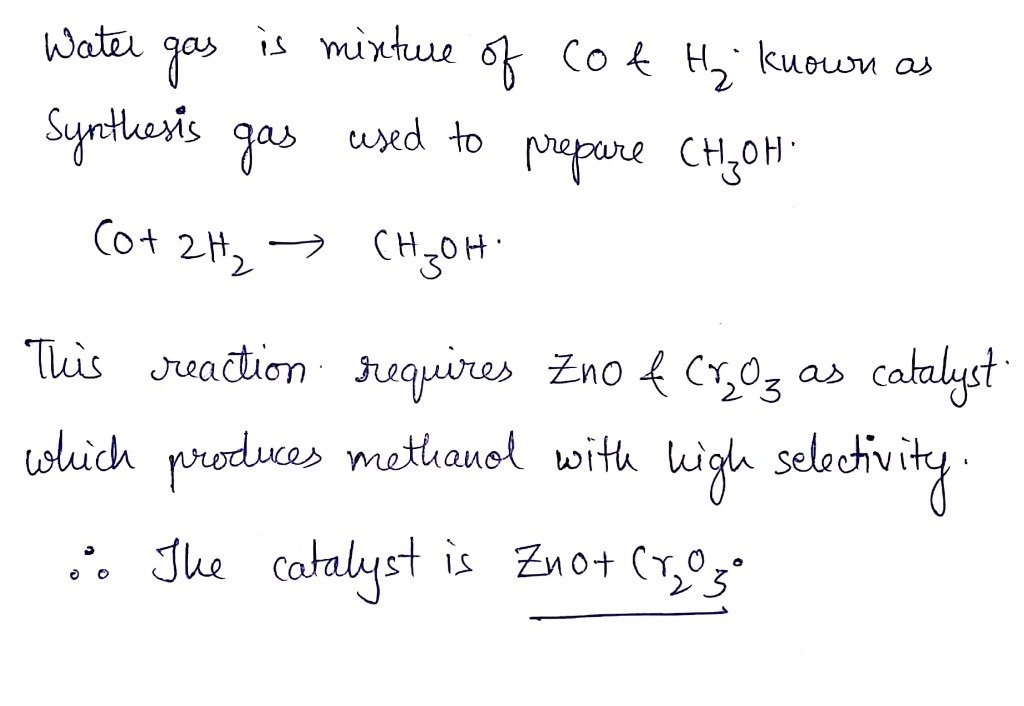 Water gas is mixture of CO & H₂ known as
Synthesis gas used to prepare CH₃OH.
CO + 2H₂ → CH₃OH.
This reaction requires ZnO & Cr₂O₃ as catalyst
which produces methanol with high selectivity.
∴ The catalyst is ZnO + Cr₂O₃.